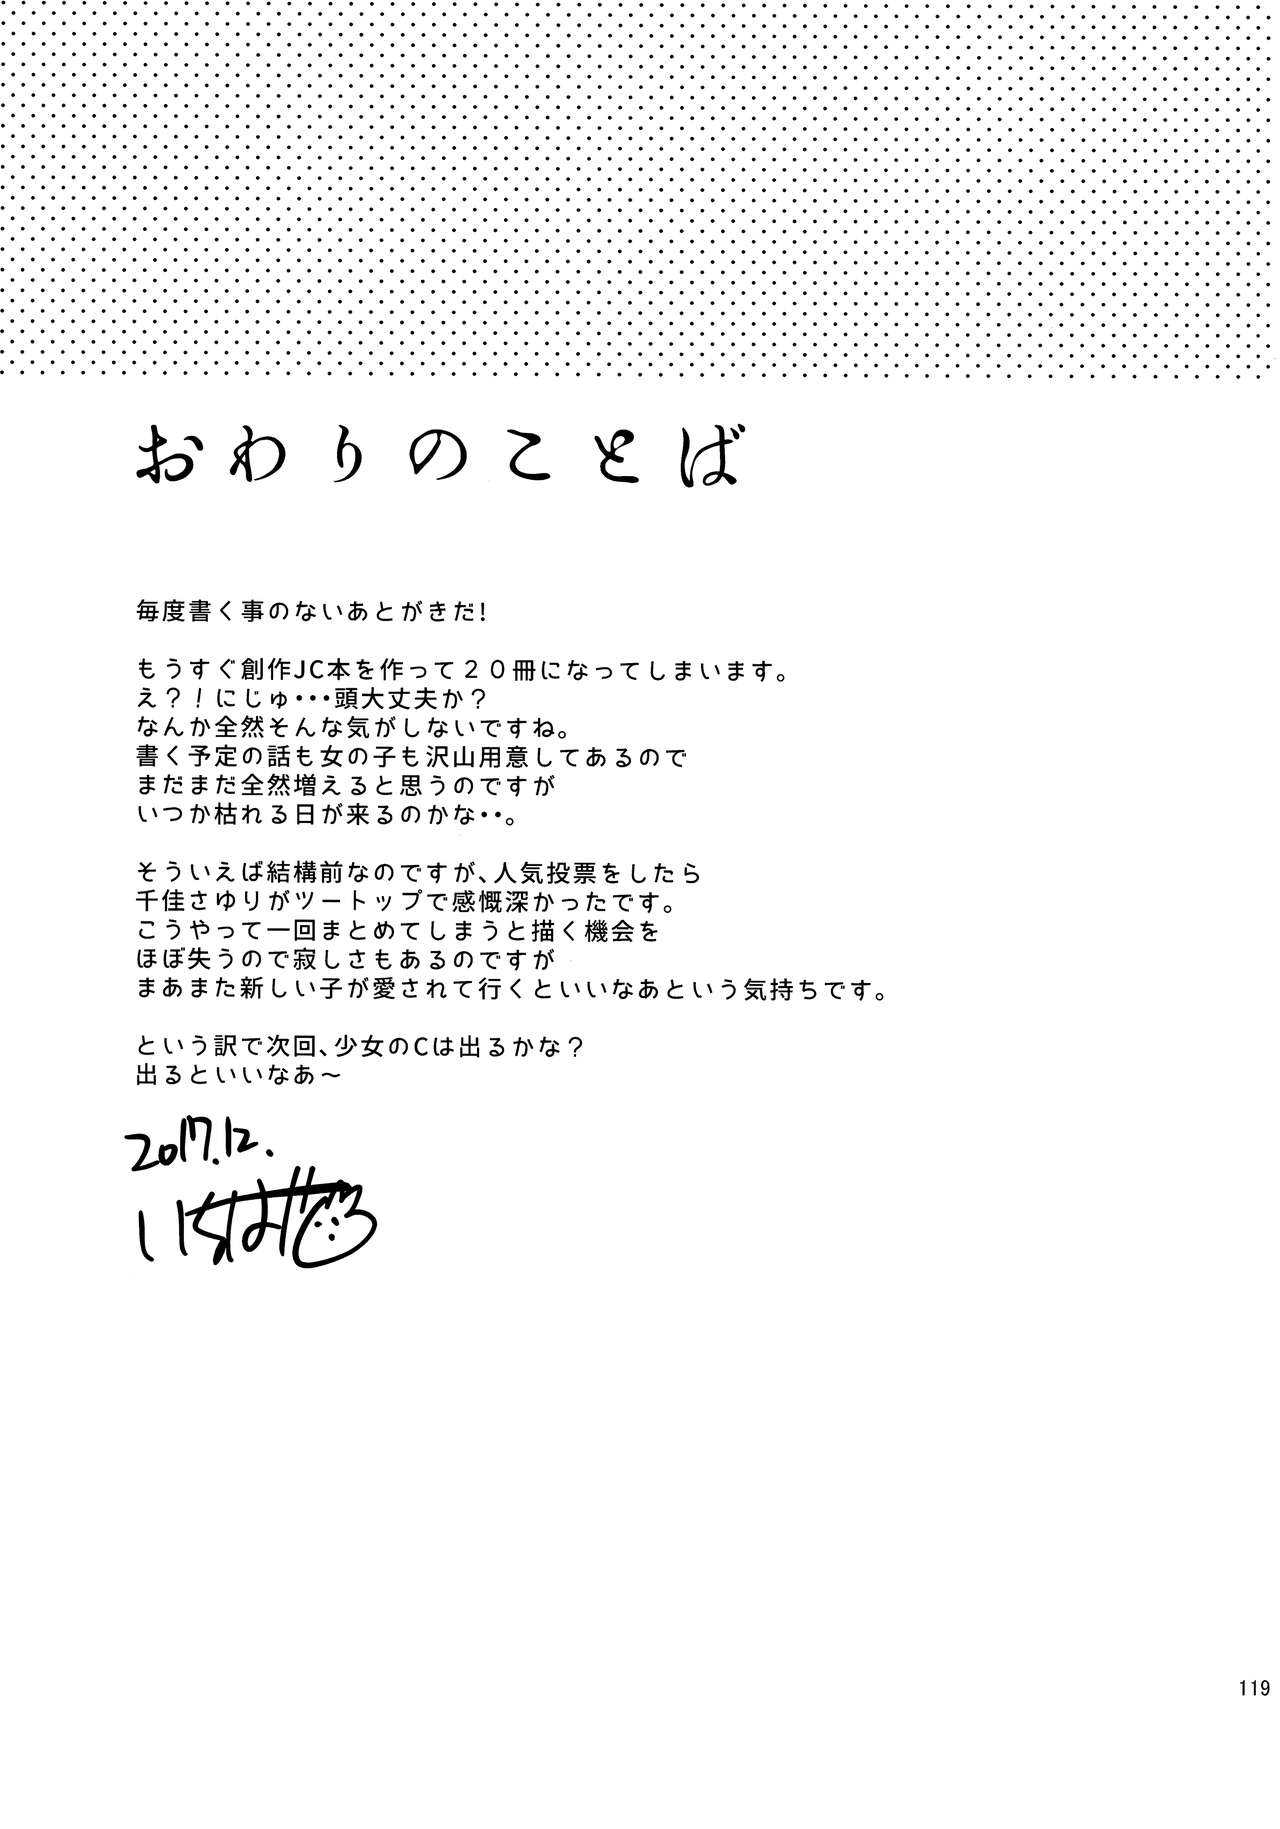 おわりのことば
毎度書く事のないあとがきだ!
もうすぐ創作JC本を作って20冊になってしまいます。
え?!にじゅ・・・頭大丈夫か?
なんか全然そんな気がしないですね。
書く予定の話も女の子も沢山用意してあるので
まだまだ全然増えると思うのですが
いつか枯れる日が来るのかな・・。
そういえば結構前なのですが、人気投票をしたら
千佳さゆりがツートップで感慨深かったです。
こうやって一回まとめてしまうと描く機会を
ほぼ失うので寂しさもあるのですが
まあまた新しい子が愛されて行くといいなあという気持ちです。
という訳で次回、少女のCは出るかな?
出るといいなあ～
2017.12.
119